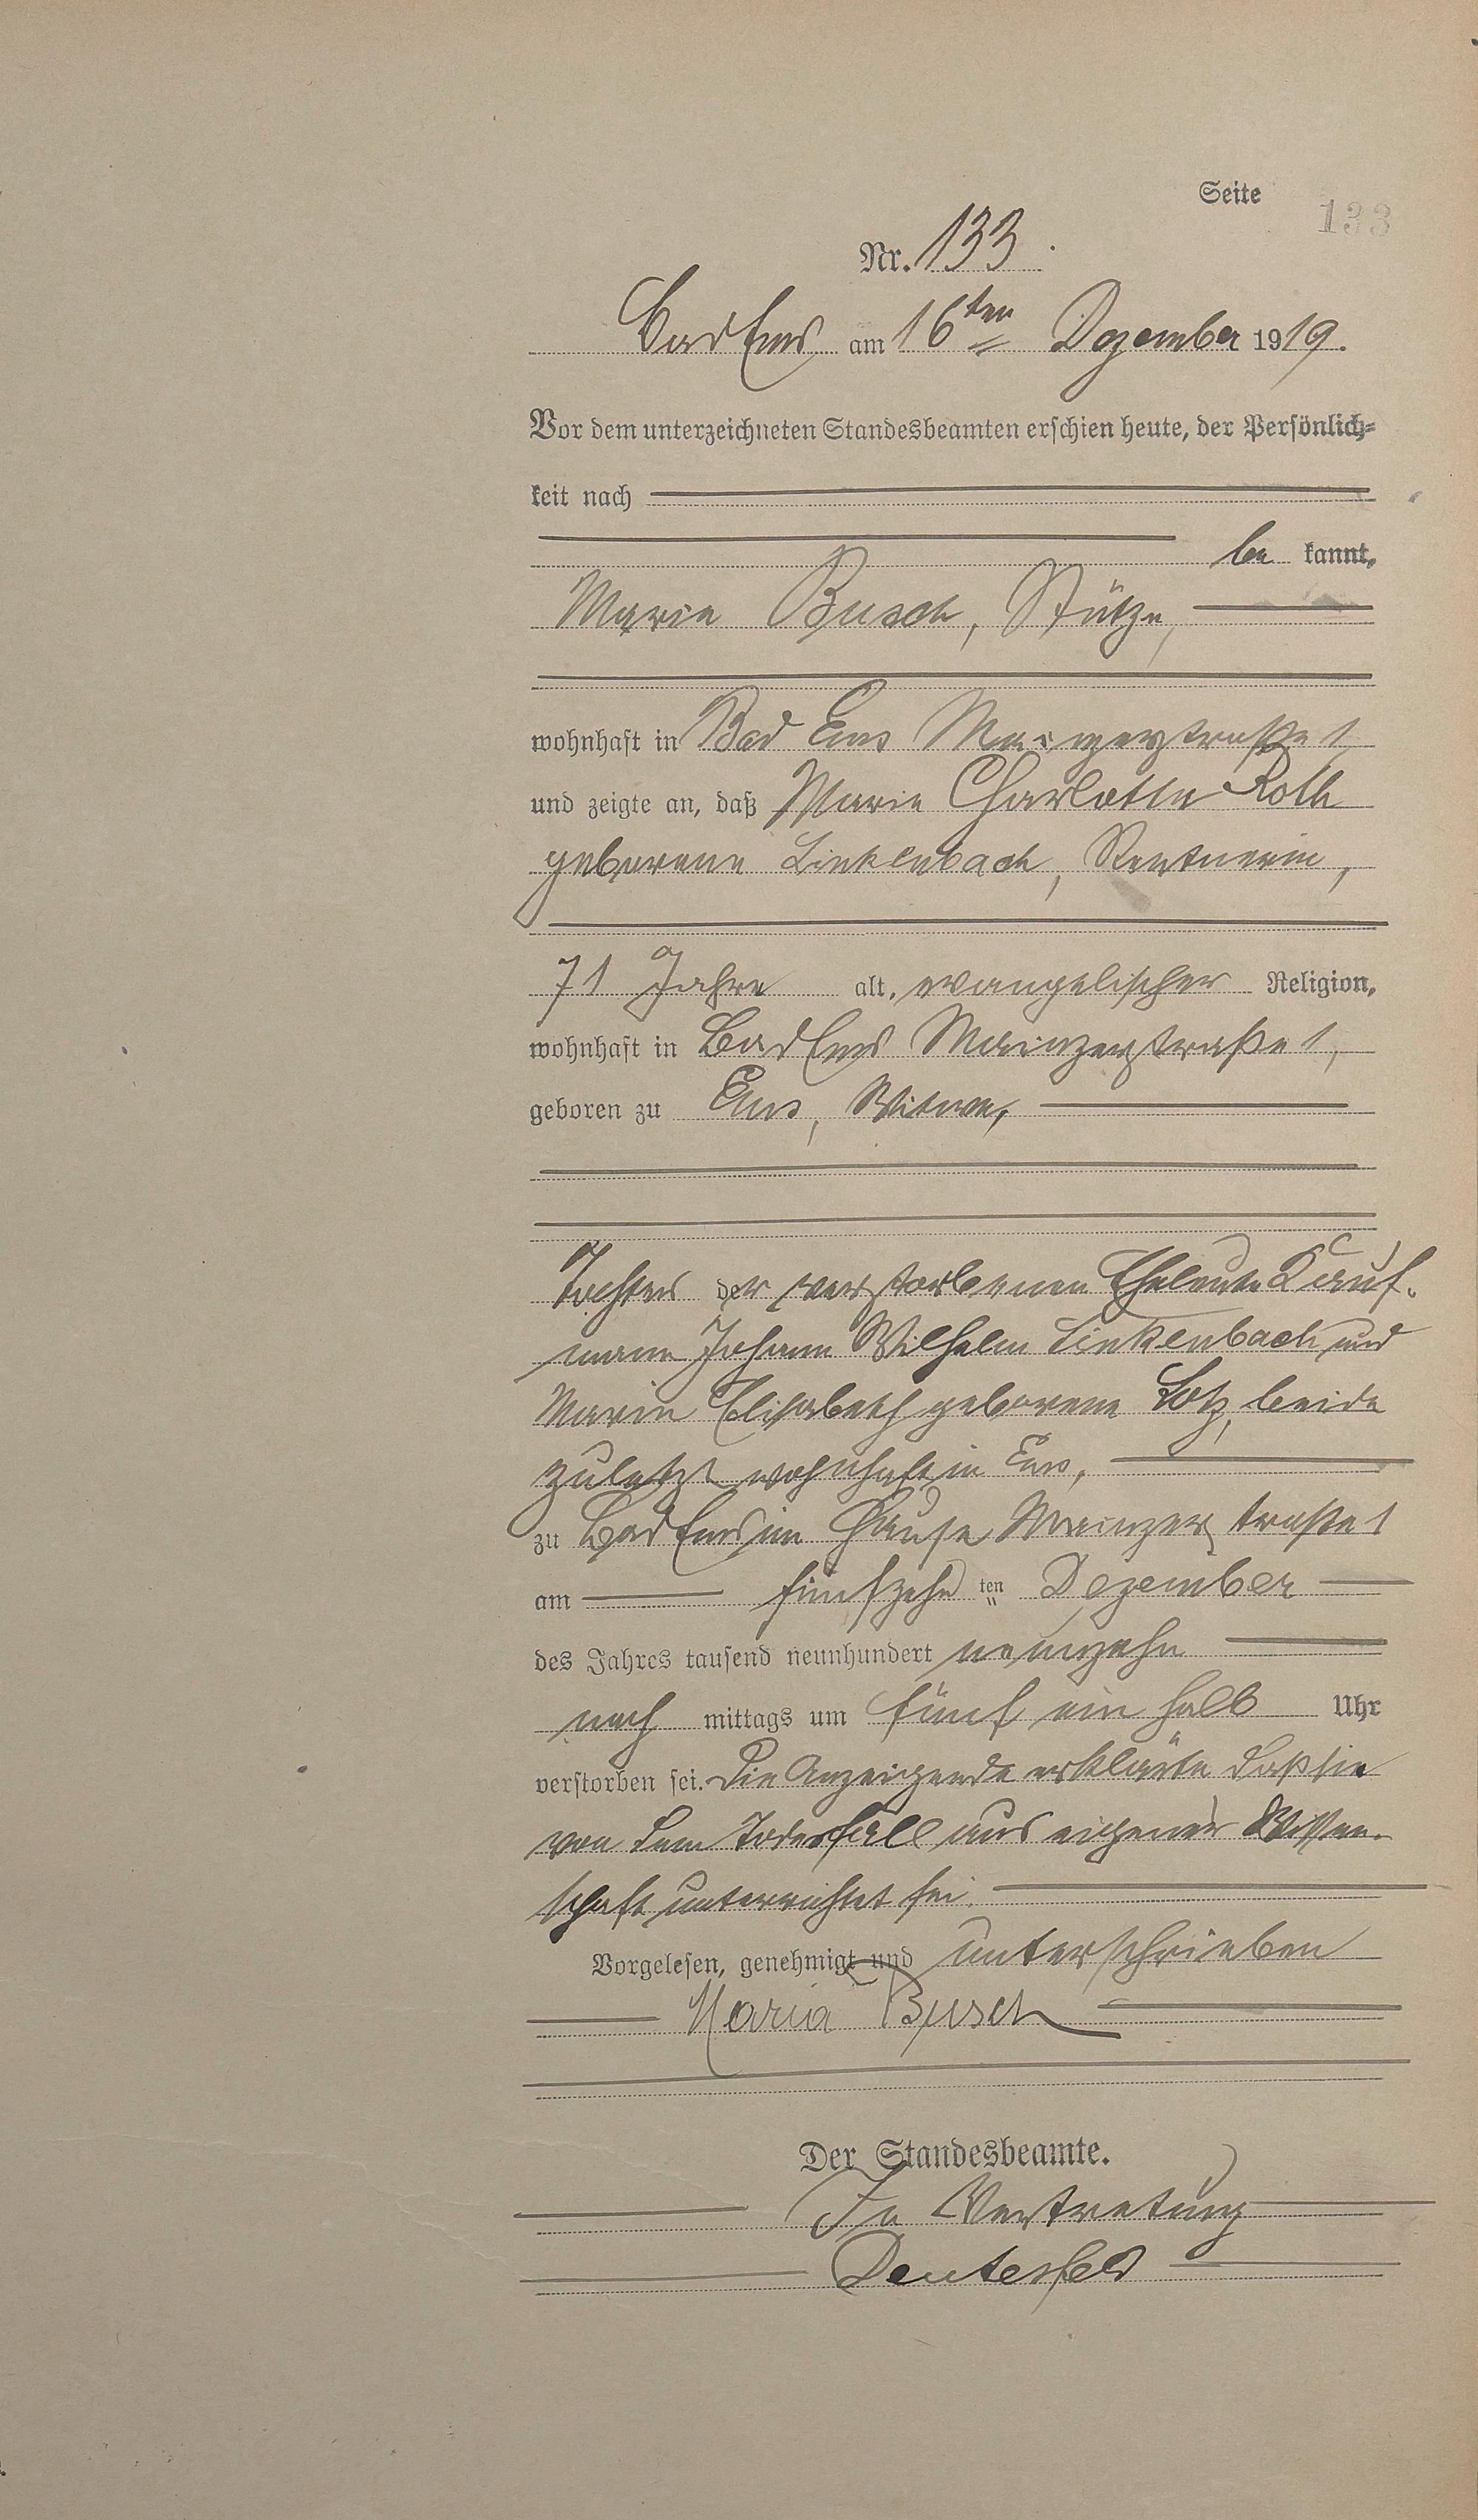 Seite 133
Nr. 133.
Bad Ems am 16ten Dezember 1919.
Vor dem unterzeichneten Standesbeamten erschien heute, der Persönlich-
keit nach
be kannt,
Marie Busch, Stütze,
wohnhaft in Bad Ems Mainzerstraße 1
und zeigte an, daß Marie Charlotte Roth
geborene Linkenbach, Rentnerin,
71 Jahre alt, evangelischer Religion,
wohnhaft in Bad Ems Mainzerstraße 1,
geboren zu Ems, Witwe,
Tochter der verstorbenen Eheleute Kauf-
mann Johann Wilhelm Linkenbach und
Marie Elisabeth geborene Lotz, beide
zuletzt wohnhaft in Ems,
zu Bad Ems im Hause Mainzerstraße 1
am fünfzehn ten Dezember
des Jahres tausend neunhundert neunzehn
nach mittags um fünf ein halb Uhr
verstorben sei. Die Anzeigende erklärte daß sie
von dem Todesfall aus eigener Wissen-
schaft unterrichtet sei.
Vorgelesen, genehmigt und unterschrieben
Maria Busch
Der Standesbeamte.
In Vertretung
Deutesfeld